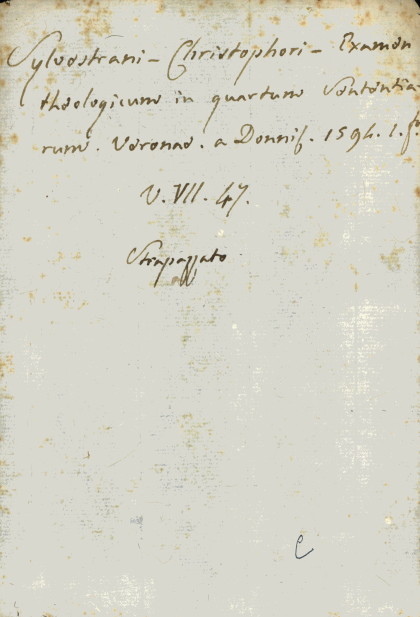 Sylvestrani - Christophori - Examen
theologicum in quartum Sententia-
rum. Veronae. a Donnis. 1594. 1. f.to
V. VII. 47.
Strapazzato
C